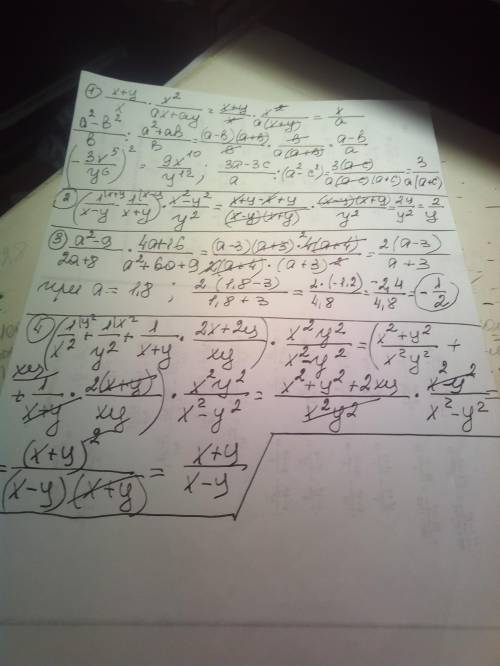 ① (x+y)/x · x²/(ax+ay) = (x+y)/x · x²/(a(x+y)) = x/a
(a²-b²)/b : (a²+ab)/b = (a-b)(a+b)/b · b/(a(a+b)) · (a-b)/a
(-3x⁵/y⁶)² = 9x¹⁰/y¹² ; (3a-3c)/a : (a²-c²) = 3(a-c)/(a(a-c)(a+c)) = 3/(a(a+c))
② (1|x+y/(x-y) 1|x-y/(x+y)) · (x²-y²)/y² = (x+y-x+y)/((x-y)(x+y)) · (x-y)(x+y)/y² = 2y/y² = 2/y
③ (a²-9)/(2a+8) · (4a+16)/(a²+6a+9) = (a-3)(a+3)·4(a+4)/(2(a+4)·(a+3)²) = 2(a-3)/(a+3)
при a = 1,8 ; 2·(1,8-3)/(1,8+3) = 2·(-1,2)/4,8 = -2,4/4,8 = -1/2
④ (1|y²/x² + 1|x²/y² + 1/(x+y) · (2x+2y)/xy) · x²y²/(x²-y²) = ((x²+y²)/x²y² +
xy
+ 1/(x+y) · 2(x+y)/xy) · x²y²/(x²-y²) = (x²+y²+2xy)/x²y² · x²y²/(x²-y²) =
= (x+y)²/((x-y)(x+y)) = (x+y)/(x-y)